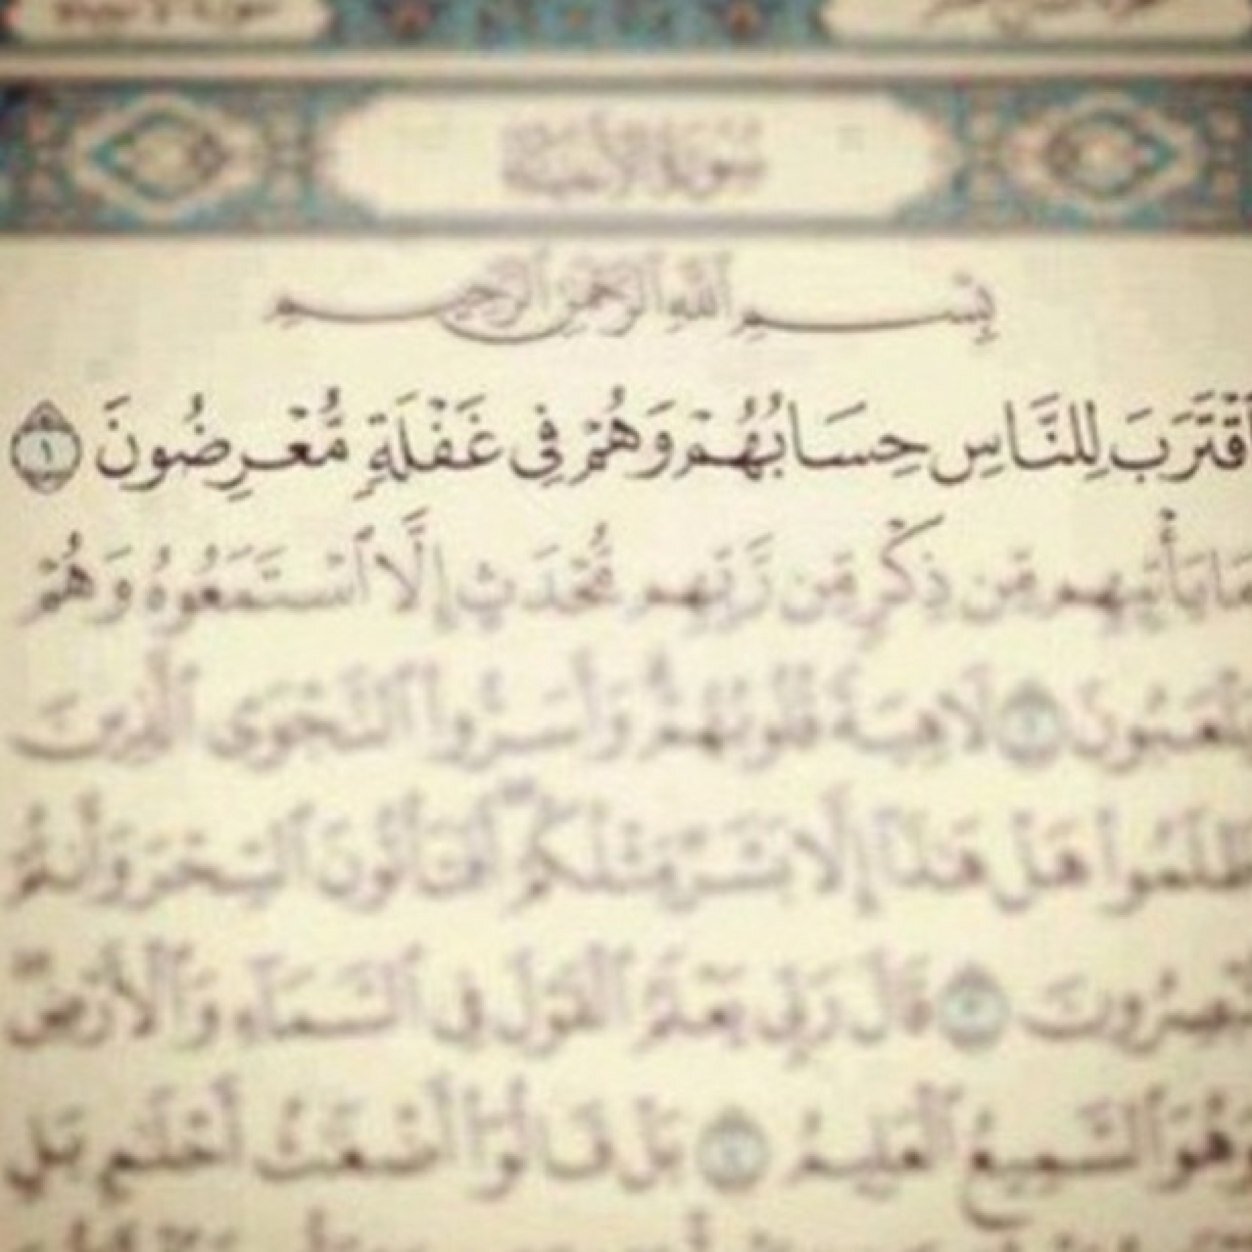 سورة الأنبياء
بِسْمِ ٱللَّهِ ٱلرَّحْمَٰنِ ٱلرَّحِيمِ
ٱقْتَرَبَ لِلنَّاسِ حِسَابُهُمْ وَهُمْ فِى غَفْلَةٍ مُّعْرِضُونَ ١
مَا يَأْتِيهِم مِّن ذِكْرٍ مِّن رَّبِّهِم مُّحْدَثٍ إِلَّا ٱسْتَمَعُوهُ وَهُمْ
يَلْعَبُونَ ٢ لَاهِيَةً قُلُوبُهُمْ وَأَسَرُّوا۟ ٱلنَّجْوَى ٱلَّذِينَ
ظَلَمُوا۟ هَلْ هَٰذَآ إِلَّا بَشَرٌ مِّثْلُكُمْ أَفَتَأْتُونَ ٱلسِّحْرَ وَأَنتُمْ
تُبْصِرُونَ ٣ قَالَ رَبِّى يَعْلَمُ ٱلْقَوْلَ فِى ٱلسَّمَآءِ وَٱلْأَرْضِ
وَهُوَ ٱلسَّمِيعُ ٱلْعَلِيمُ ٤ بَلْ قَالُوٓا۟ أَضْغَٰثُ أَحْلَٰمٍ بَلِ